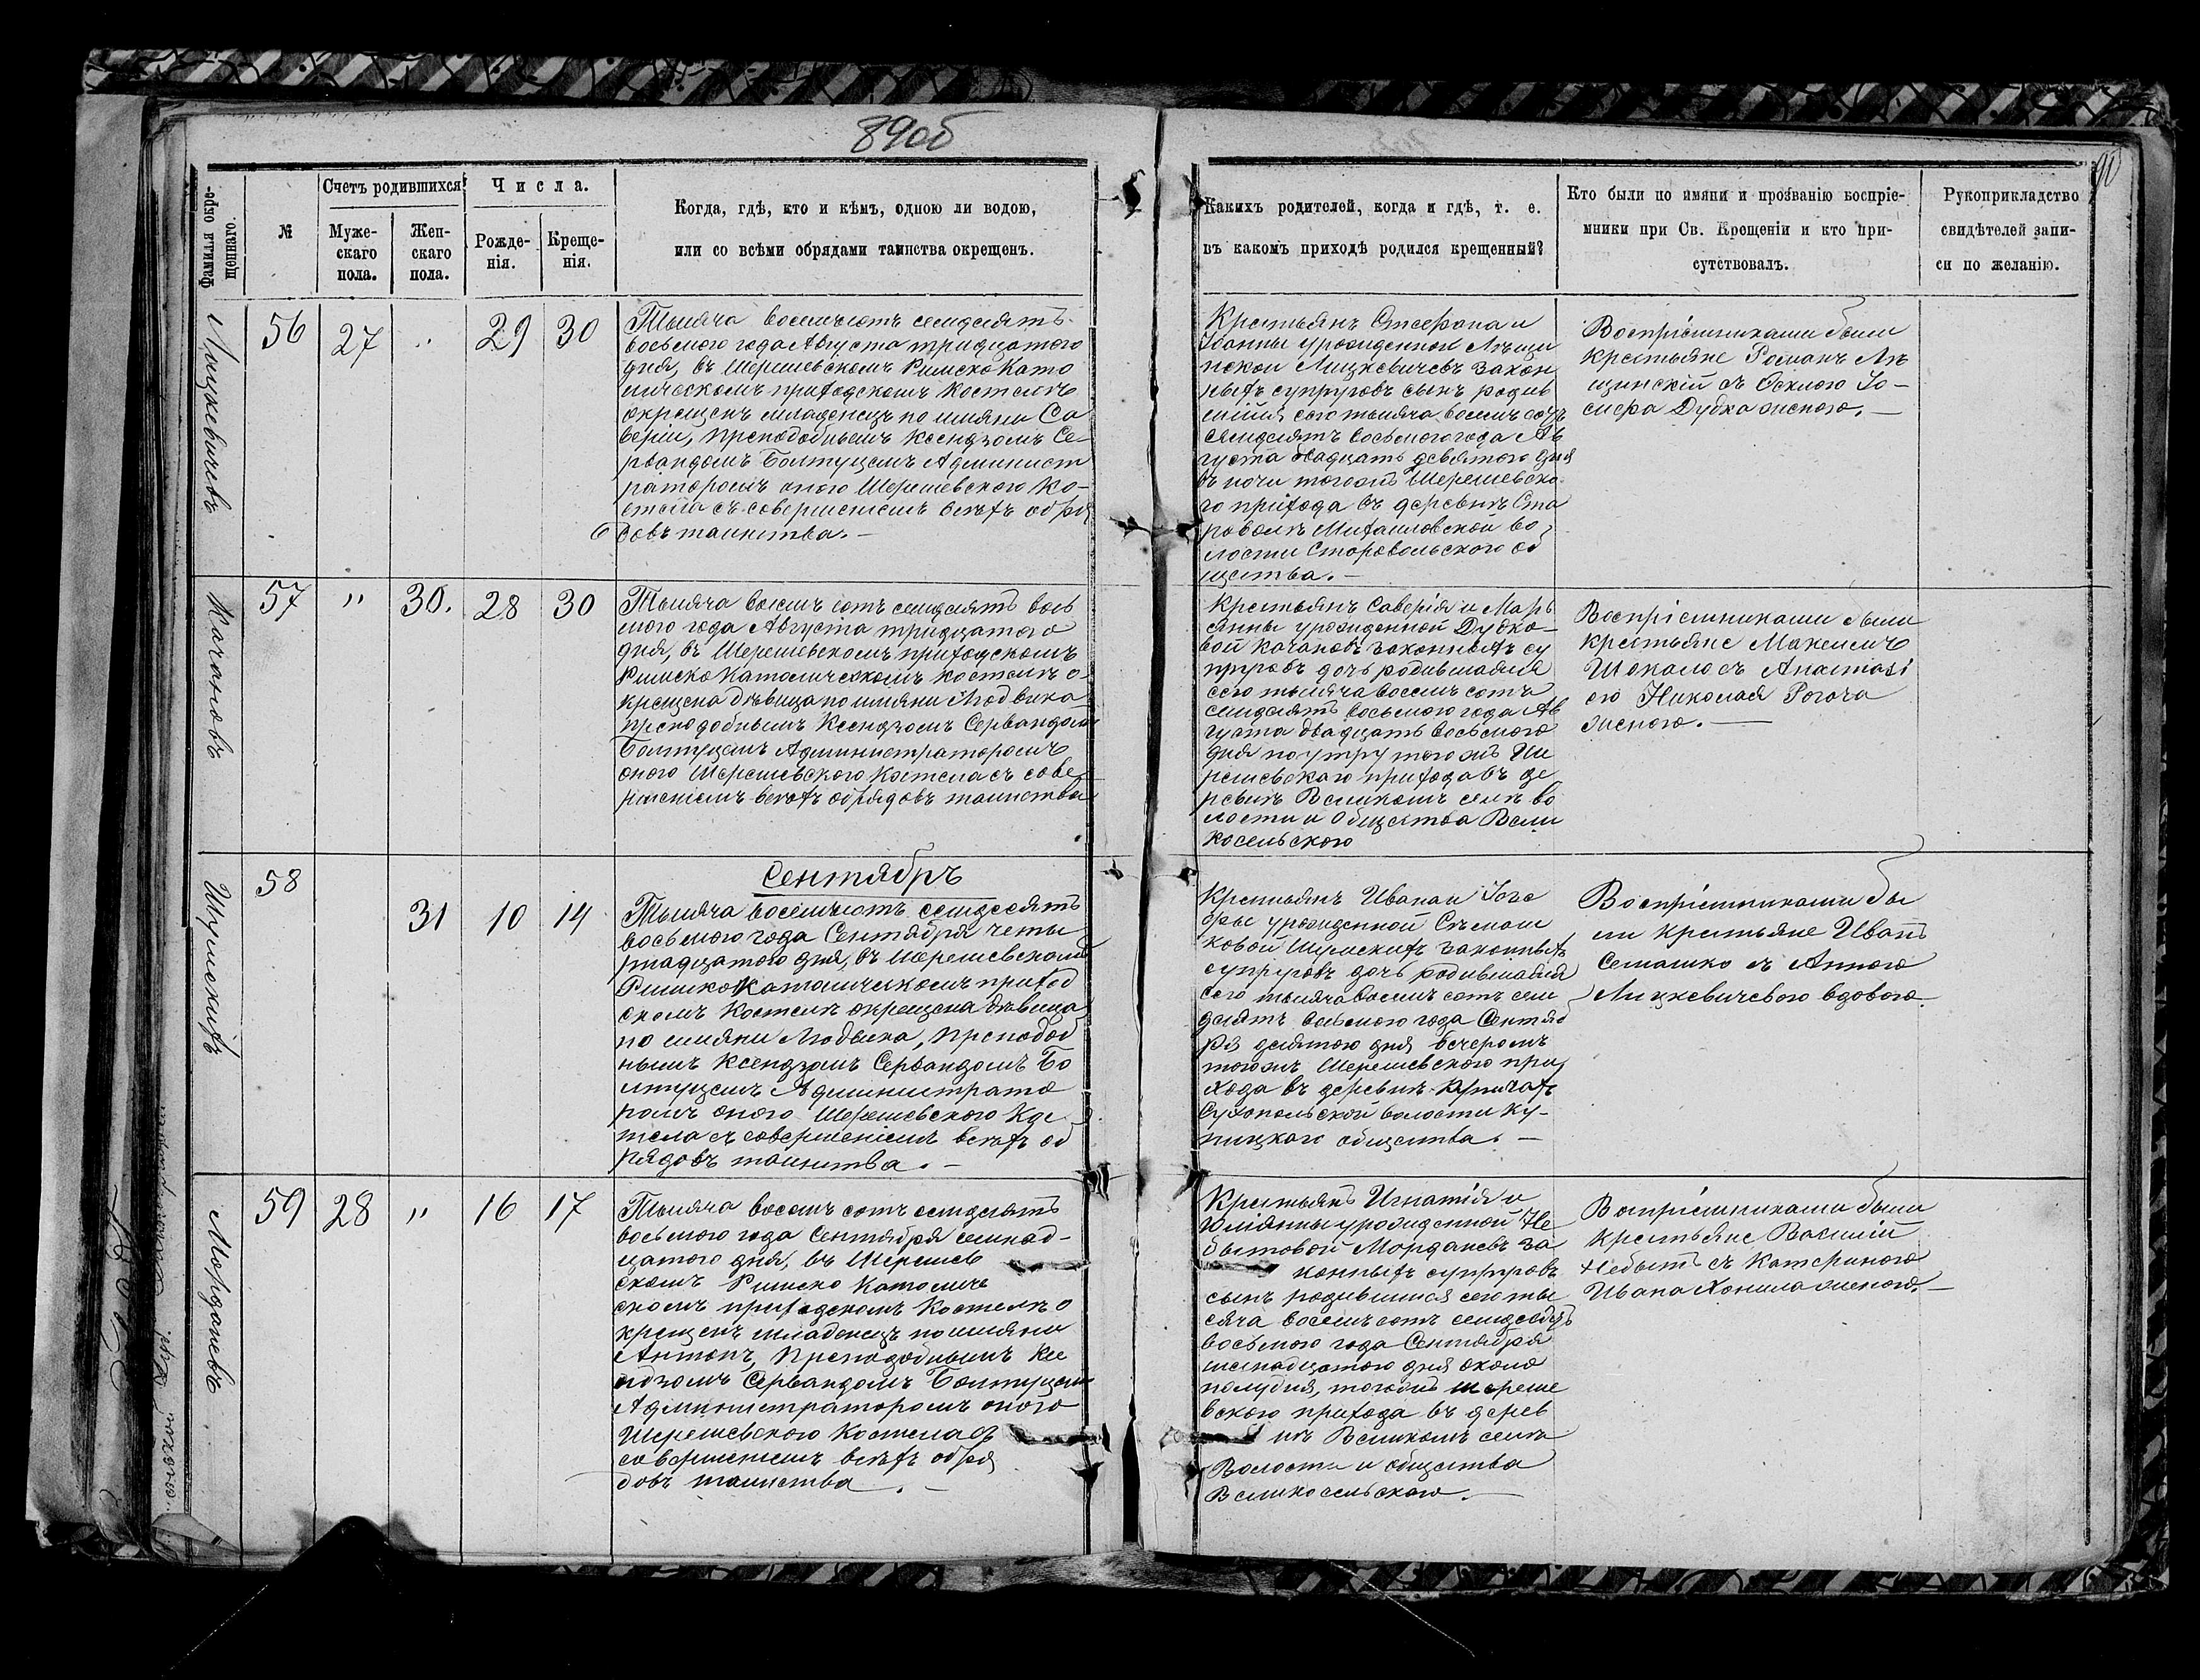 89об
90
Фамилія окре-
щенаго.
№
Счетъ родившихся
Муже-
скаго
пола.
Жен-
скаго
пола.
Числа.
Рожде-
нія.
Креще-
нія.
Когда, гдѣ, кто и кѣмъ, одною ли водою,
или со всѣми обрядами таинства окрещенъ.
Каких​ъ родителей, когда и гдѣ, т. е.
въ какомъ приходѣ родился крещенный?
Кто были по имяни и прозванію воспріе-
мники при Св. Крещеніи и кто при-
сутствовалъ.
Рукоприкладство
свидѣтелей запи-
си по желанію.
Лицкевичевъ
56
27
"
29
30
Тысяча восемьсотъ семдсятъ
восьмого года Августа тридцатого
дня, въ Шерешевскомъ Римско Като
лическомъ приходскомъ костелѣ
окрещенъ младенецъ по имяни Са
верій, преподобнымъ Ксендзомъ Се-
рвандомъ Болтуцемъ Админист
раторомъ оного Шерешевского Ко-
стела съ совершеніемъ всѣхъ обря
довъ таинства. —
Крестьянъ Стефана и
Іоанны урожденной Лѣщи
нской Лицкевичевъ закон
ныхъ супруговъ сынъ родив
шійся сего тысяча восемь сотъ
семдсятъ восьмого года Ав
густа двадцать девятого дня
въ ночи тогожъ Шерешевско-
го прихода въ деревнѣ Ста
роволѣ Михаиловской во
лости Старовольского об
щества. —
Воспріемниками были
крестьяне Романъ Лѣ
щинскій съ Феклою Іо-
сифа Дубка женою. —
Качановъ
57
"
30.
28
30
Тысяча восемь сотъ семдсятъ вось
мого года Августа тридцатого
дня, въ Шерешевскомъ приходскомъ
Римско Католическомъ костелѣ о-
крещена дѣвица по имяни Людвика
преподобнымъ Ксендзомъ Сервандомъ
Болтуцемъ Администраторомъ
оного Шерешевского Костела съ сове
ршеніемъ всѣхъ обрядовъ таинства
Крестьянъ Саверія и Марь
янны урожденной Дубко-
вой Качановъ законныхъ су
пруговъ дочь родившаяся
сего тысяча восемь сотъ
семдсятъ восьмого года Ав
густа двадцать восьмого
дня поутру того жъ Ше
решевскаго прихода въ де
ревнѣ Великомъ селѣ во
лости и общества Вели
косельского
Воспріемниками были
крестьяне Максимъ
Шокало съ Анастазі
ею Николая Рогача
женою. —
Шумскихъ
58
31
10
14
Сентябрь
Тысяча восемьсотъ семдсятъ
восьмого года Сентября четы
рнадцатого дня, въ Шерешевскомъ
Римско Католическомъ приход
скомъ Костелѣ окрещена дѣвица
по имяни Людвика, преподоб
нымъ Ксендзомъ Сервандомъ Бо
лтуцемъ Администрато
ромъ оного Шерешевского Кос
тела съ совершеніемъ всѣхъ об
рядовъ таинства. —
Крестьянъ Ивана и Юзе
фы урожденной Сѣмаш
ковой Шумскихъ законныхъ
супруговъ дочь родившаяся
сего тысяча восемь сотъ сем
дсятъ восьмого года Сентяб
ря десятого дня вечеромъ
тогожъ Шерешевского при
хода въ деревнѣ Купичахъ
Сухопольской волости Ку-
пицкаго общества. —
Воспріемниками бы
ли крестьяне Иванъ
Семашко съ Анною
Лицкевичевою вдовою
Морданевъ
59
28
"
16
17
Тысяча восемь сотъ семдсятъ
восьмого года Сентября семнад-
цатого дня, въ Шерешев
скомъ Римско Католиче
скомъ приходскомъ Костелѣ о
крещенъ младенецъ по имяни
Антонъ, преподобнымъ Ксе
ндзомъ Сервандомъ Болтуцемъ
Администраторомъ оного
Шерешевского Костела съ
совершеніемъ всѣхъ обря
довъ таинства. —
Крестьянъ Игнатія и
Юліянны урожденной Не
бытовой Морданевъ за
конныхъ супруговъ
сынъ родившійся сего ты
сяча восемь сотъ семдсятъ
восьмого года Сентября
шеснадцатого дня около
полудня, тогожъ Шереше
вского прихода въ дерев
нѣ Великомъ селѣ
Волости и общества
Великосельского. —
Воспріемниками были
крестьяне Василій
Небытъ съ Катериною
Ивана Хонила женою. —